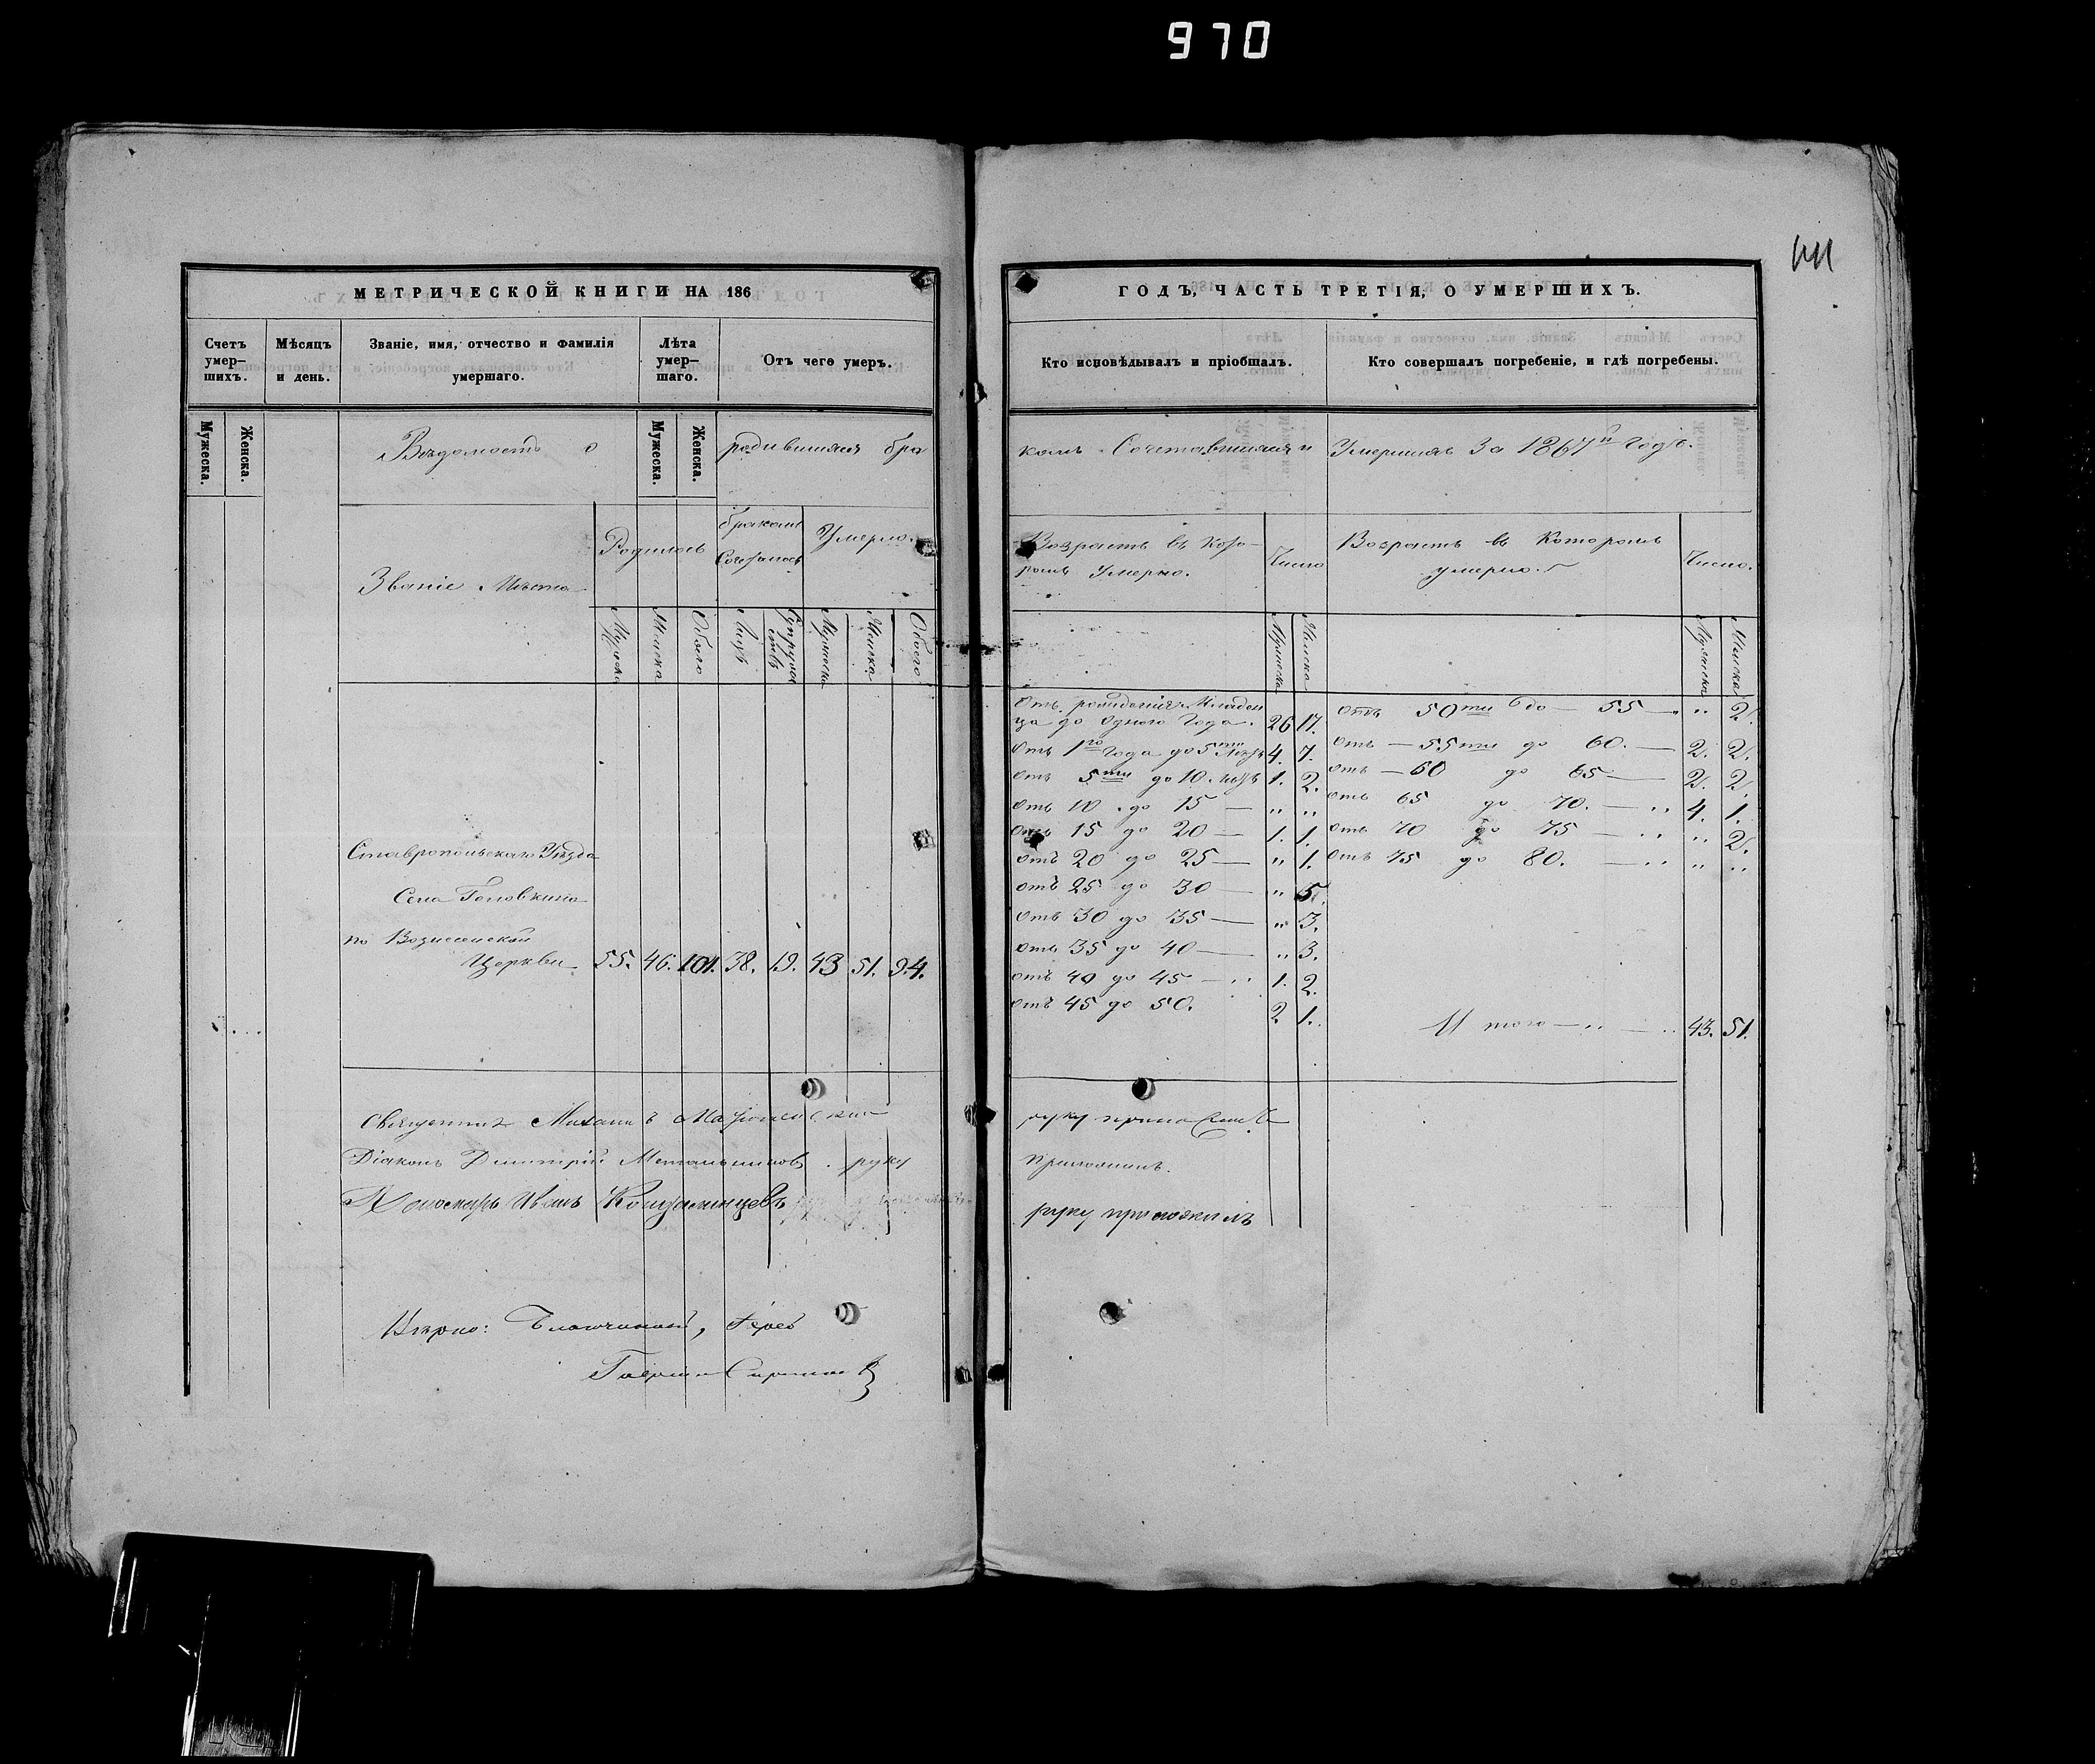 970
МЕТРИЧЕСКОЙ КНИГИ НА 186
Счетъ умер–шихъ.
Мѣсяцъ и день.
Званіе, имя, отчество и фамилія умершаго.
Лѣта умер–шаго.
Отъ чего умеръ.
Мужеска.
Женска.
Мужеска.
Женска.
Вѣдомость о родившихся бра
Званіе Мѣста
Родилось
браком Сочеталось
Умерло.
Мужеска
Женска
Обоего
Лицъ
Супружествъ
Мужеска
Женска
Обоего
Ставропольскаго Уѣзда
Села Головкина
по Вознесенской
Церкви 55. 46. 101. 38. 19. 43 51. 94.
Священникъ Михаилъ
Діаконъ Дмитрій Метальников. руку
Пономарь Иванъ
Вѣрно: Благочинный, Іерей
Гавріил
ГОДЪ, ЧАСТЬ ТРЕТІЯ, О УМЕРШИХЪ.
Кто исповѣдывалъ и пріобщалъ.
Кто совершалъ погребеніе, и гдѣ погребены.
комъ Сочетавшихся и Умершихъ За 1867й Годъ.
Возрастъ въ Кото–
ромъ Умерло.
Число
Возрастъ въ Которомъ
умерло.
Число.
Мужеска
Женска
Мужеска
Женска
Отъ рожденія Младен
ца до Одного Года. 26 17.
Отъ 1го Года до 5ти Лѣтъ 4. 7.
Отъ 5ти до 10. лѣтъ 1. 2.
Отъ 10. до 15 — „ „
Отъ 15 до 20 — 1. 1.
Отъ 20 до 25 — „ 1.
Отъ 25 до 30 — „ 5.
Отъ 30 до 35 — „ 3.
Отъ 35 до 40 — „ 3.
Отъ 40 до 45 — „ 1. 2.
Отъ 45 до 50. 2 1.
Отъ 50ти до — 55 — „ 2.
Отъ — 55ти до 60. — 2. 2.
Отъ — 60 до 65 — 2. 2.
Отъ 65 до 70. — „ 4. 1.
Отъ 70 до 75 — „ „ 2.
Отъ 75 до 80. — „ „ „
Итого — „ — „ 43. 51.
руку приложилъ
приложилъ.
руку приложилъ